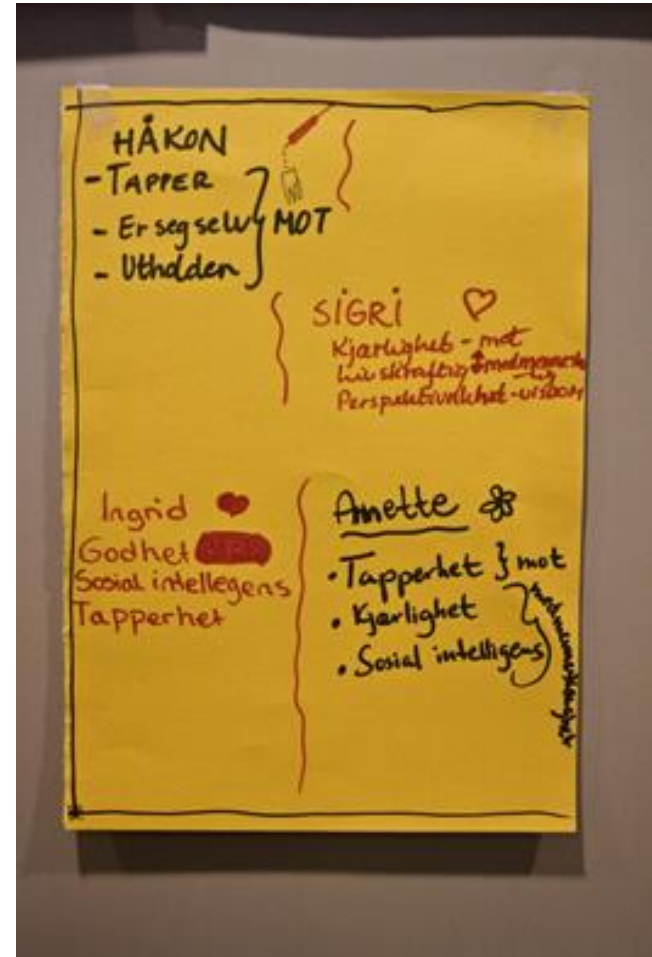 HÅKON
- TAPPER
- Er seg selv } MOT
- Utholden
SIGRI
Kjærlighet - mot
Livskraftig
Perspektivrikhet - visdom
Ingrid
Godhet
Sosial intellegens
Tapperhet
Anette
• Tapperhet } mot
• Kjærlighet
• Sosial intelligens
medmenneskelighet